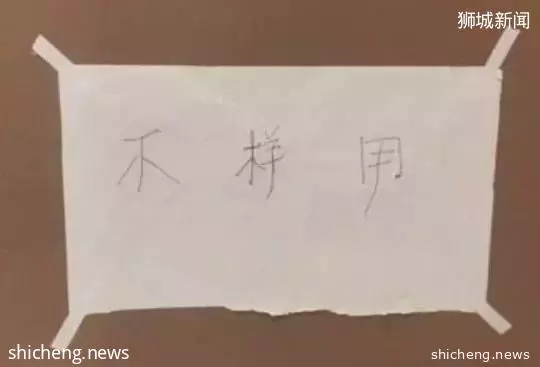 狮城新闻
不 样 用
shicheng.news
shicheng.news